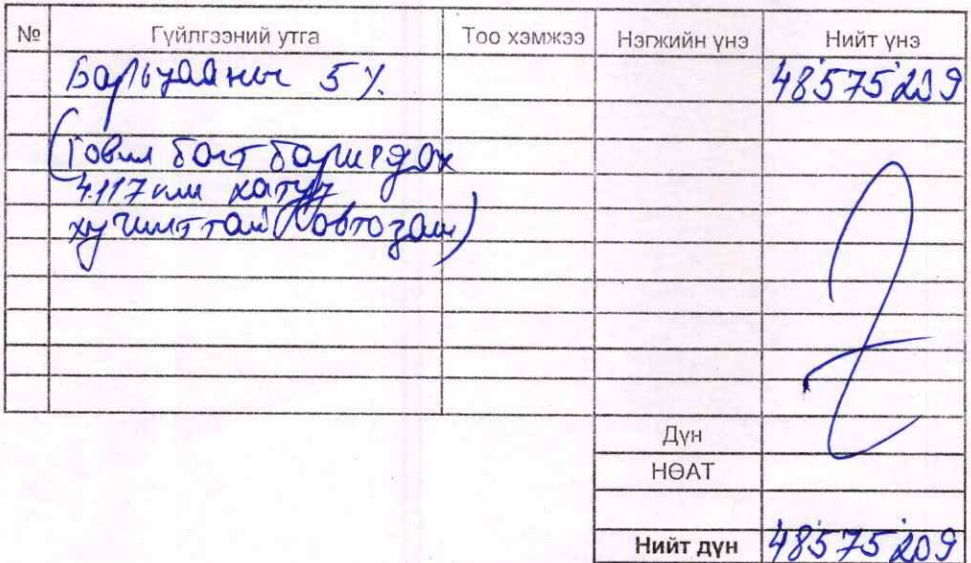 № Гүйлгээний утга Тоо хэмжээ Нэгжийн үнэ Нийт үнэ
Барьцааны 5% 48'575'209
(Говил багт баригдах
4.117 км хатуу
хучилттай автозам)
Дүн
НӨАТ
Нийт дүн 48'575'209